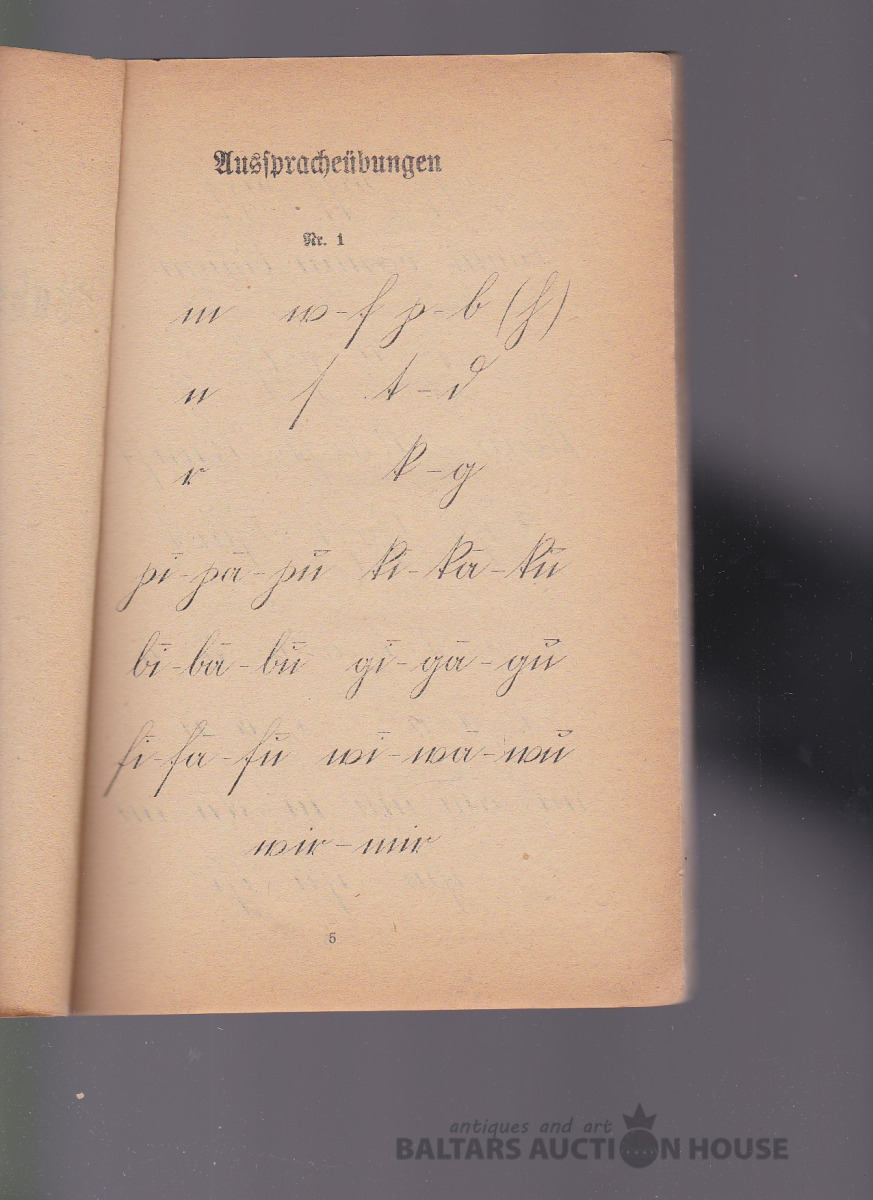 Ausspracheübungen
Nr. 1
m w-f p-b (h)
n s t-d
r k-g
pī-pā-pū kī-kā-kū
bī-bā-bū gī-gā-gū
fī-fā-fū wī-wā-wū
wir-mir
5
antiques and art
BALTARS AUCTION HOUSE